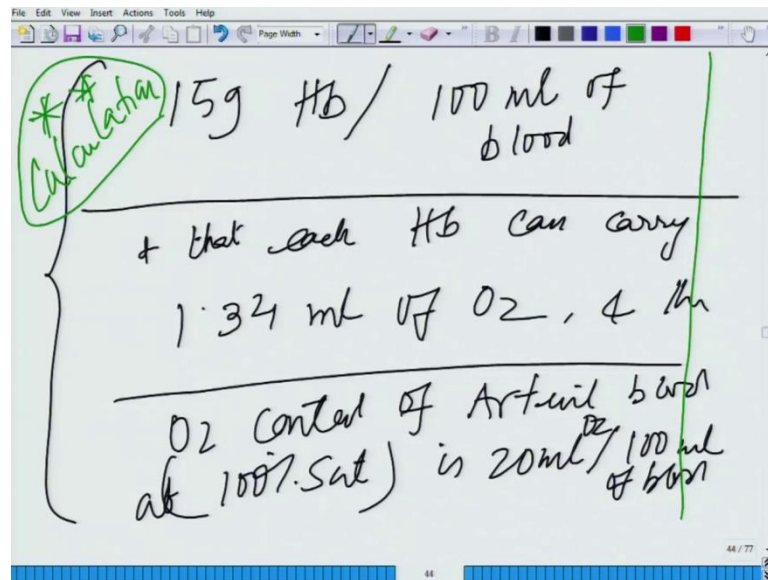 File Edit View Insert Actions Tools Help
Page Width
* *
Calculation
15g Hb / 100 ml of
blood
+ that each Hb can carry
1.34 ml of O2, & the
O2 content of Arterial blood
at 100% Sat) is 20ml O2/100 ml
of blood
44 / 77
44